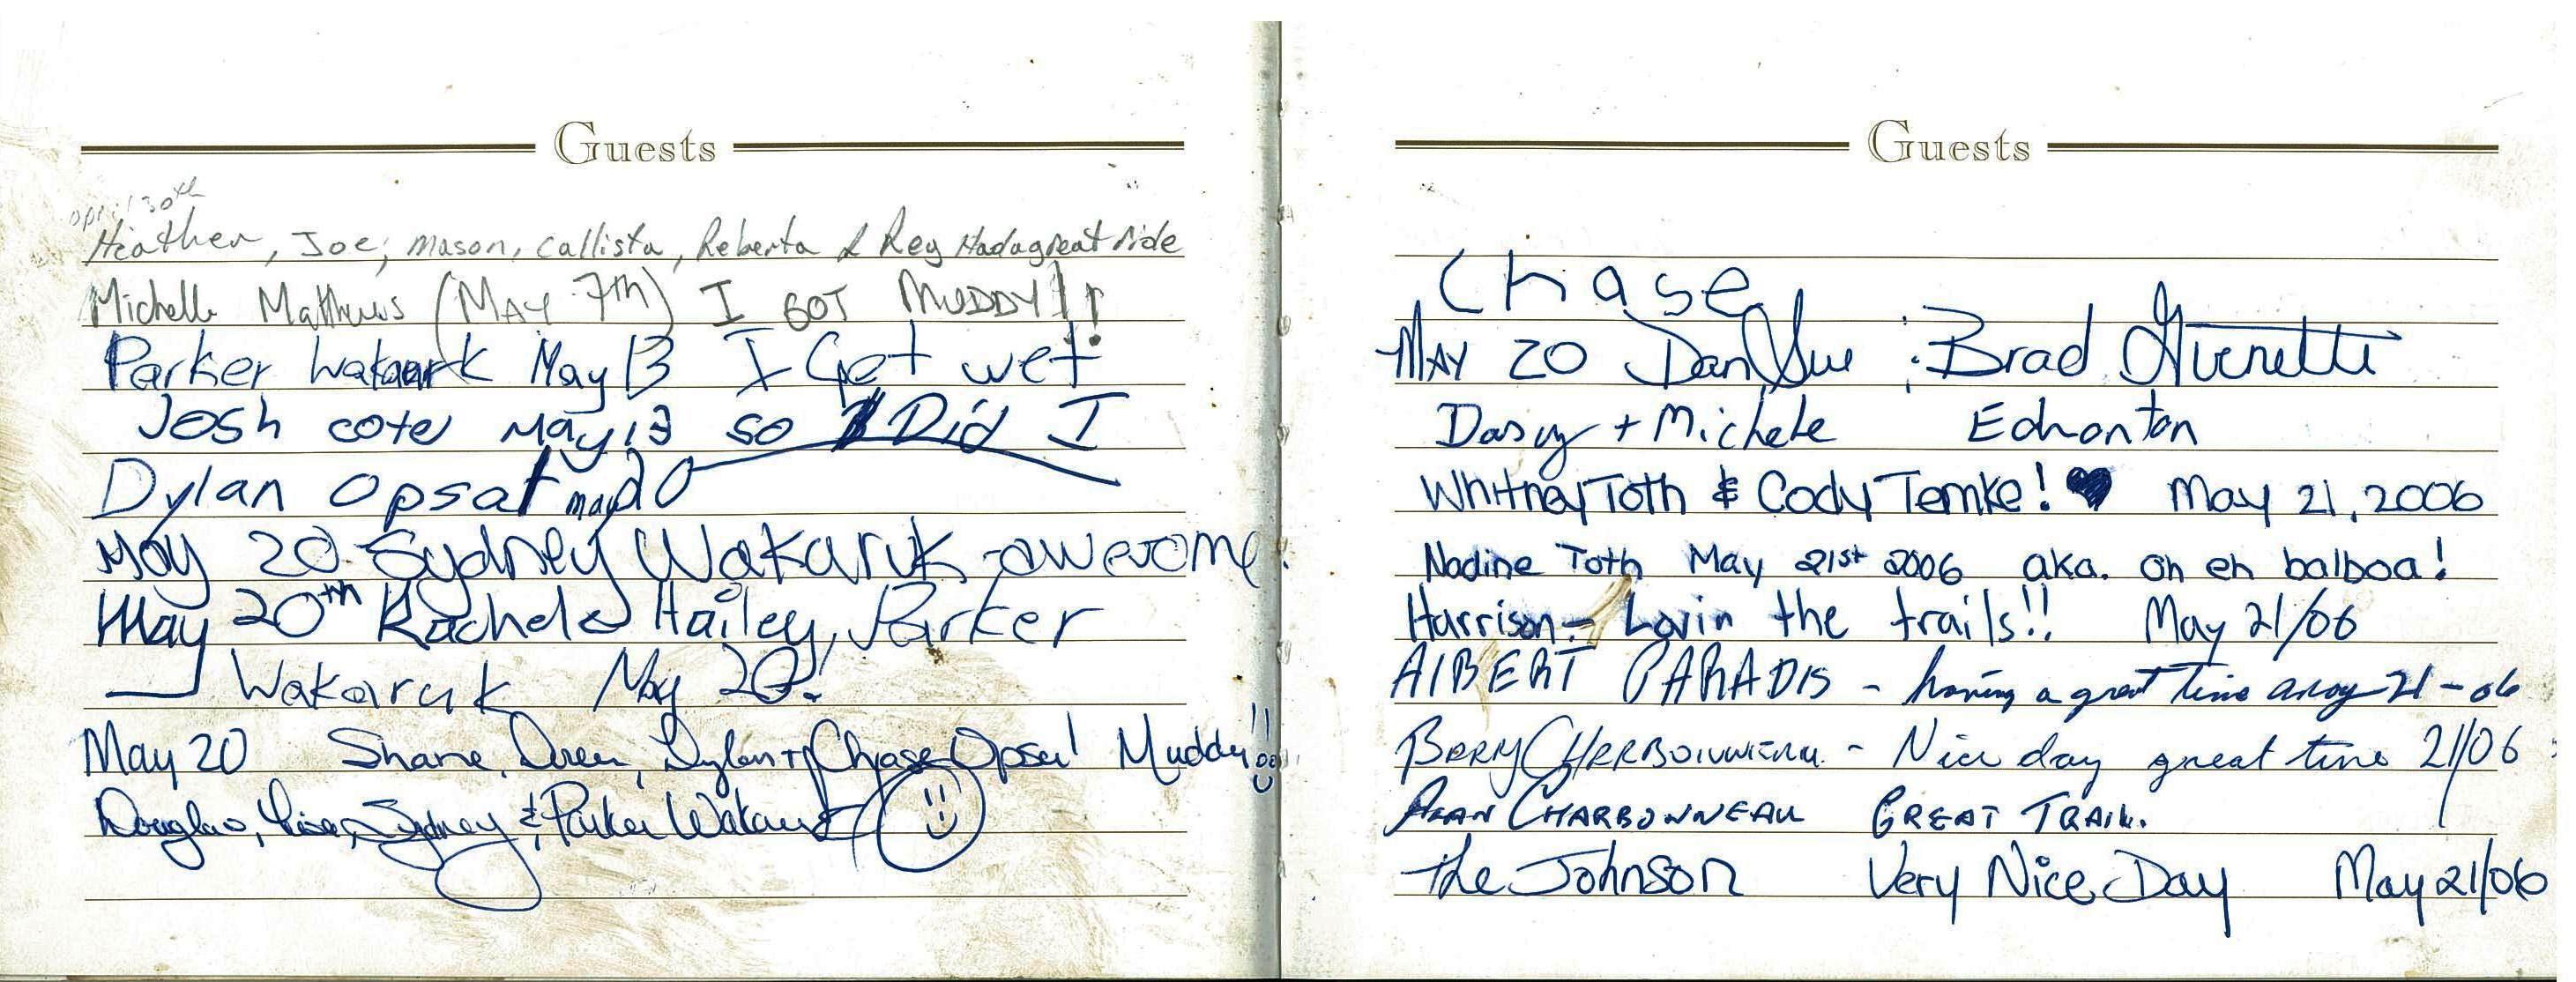 Guests
april 30th
Heather, Joe, mason, callista, Roberta & Reg Had a great ride
Michelle Matthews (MAY 7th) I GOT MUDDY!!
Parker Wakaruk May 13 I Got wet!
Josh cote May 13 so Did I
Dylan Opsal may 20
May 20 Sydney Wakaruk -awesome!
May 20th Rachel & Hailey, Parker
Wakaruk May 20!
May 20 Shane, Dylan + Chase Opsal Muddy!!
Douglas, Lisa, Sydney & Parker Wakaruk
Guests
Chase
MAY 20 Dan Sue Brad
Darcy + Michele Edmonton
Whitney Toth & Cody Temke! ♥ May 21, 2006
Nadine Toth May 21st 2006 aka. oh eh balboa!
Harrison - Lovin the trails!! May 21/06
AlBERT PARADIS - having a great time may 21-06
CHARBONNEAU - Nice day great time 21/06
ALAN CHARBONNEAU GREAT TRAIL.
the Johnson Very Nice Day May 21/06